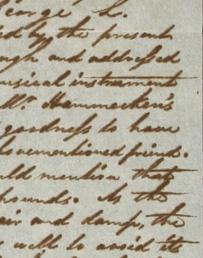 George L.
ed by the present
ugh and addressed
musical instrument
Mr. Hammacken's
goodness to have
bovementioned friend.
uld mention that
pounds. As the
air and damp, the
s well to avoid its